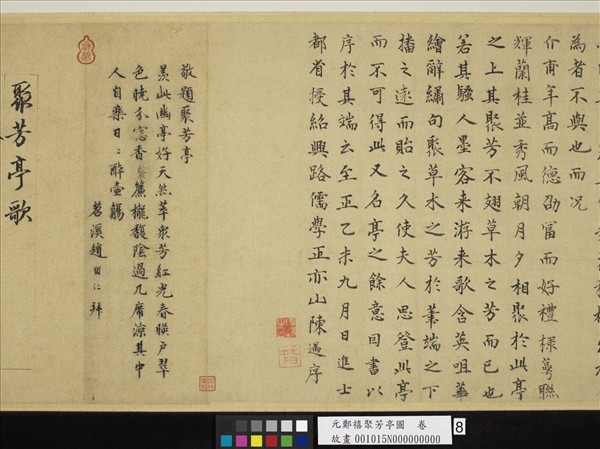 為者不與也而況
介甫年高而德劭富而好禮棣萼聯
輝蘭桂並秀風朝月夕相聚於此亭
之上其聚芳不翅草木之芳而已也
若其騷人墨客来游来歌含英咀華
繪辭繡句聚草木之芳於筆端之下
播之遠而貽之久使夫人思登此亭
而不可得此又名亭之餘意因書以
序於其端云至正乙未九月日進士
都省授紹興路儒學正亦山陳遇序
敬題聚芳亭
羡此幽亭好天然萃衆芳紅光春暎戶翠
色晓分窓香簾櫳馥陰過几席涼其中
人自樂日〻醉壺觴
苕溪趙 仁 拜
聚芳亭歌
元鄭禧聚芳亭圖 卷
故畫 001015N000000000
8